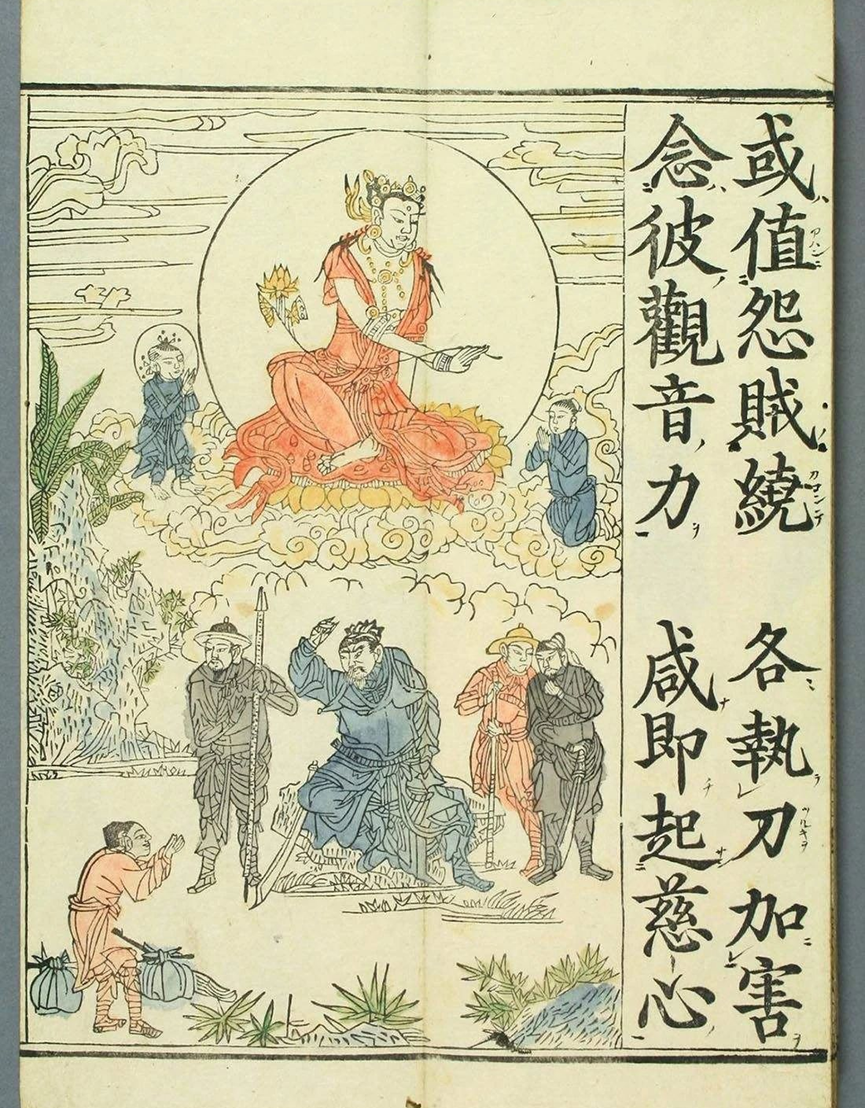 或値怨賊繞 各執刀加害
念彼觀音力 咸即起慈心